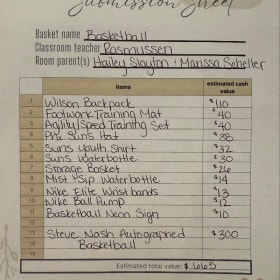 Submission Sheet
Basket name Basketball
Classroom teacher Rasmussen
Room parent(s) Hailey Slayton · Marissa Scheller
Items estimated cash value
1 Wilson Backpack $110
2 Footwork Training Mat $40
3 Agility/Speed Training Set $40
4 PHX Suns Hat $38
5 Suns Youth Shirt $32
6 Suns Waterbottle $30
7 Storage Basket $26
8 Mist 'n Sip Waterbottle $14
9 Nike Elite Wristbands $13
10 Nike Ball Pump $12
11 Basketball Neon Sign $10
12
13 Steve Nash Autographed $300
14 Basketball
15
Estimated total value: $665